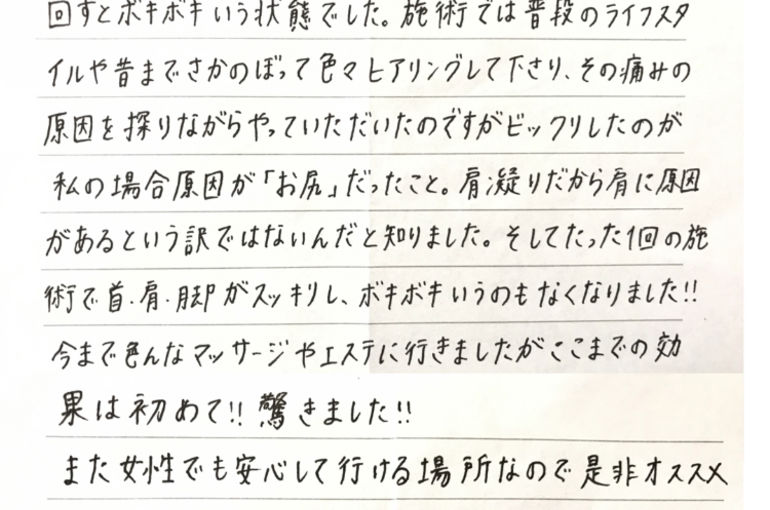 回すとボキボキいう状態でした。施術では普段のライフスタ
イルや昔までさかのぼって色々ヒアリングして下さり、その痛みの
原因を探りながらやっていただいたのですがビックリしたのが
私の場合原因が「お尻」だったこと。肩凝りだから肩に原因
があるという訳ではないんだと知りました。そしてたった1回の施
術で首・肩・脚がスッキリし、ボキボキいうのもなくなりました!!
今まで色んなマッサージやエステに行きましたがここまでの効
果は初めて!!驚きました!!
また女性でも安心して行ける場所なので是非オススメ